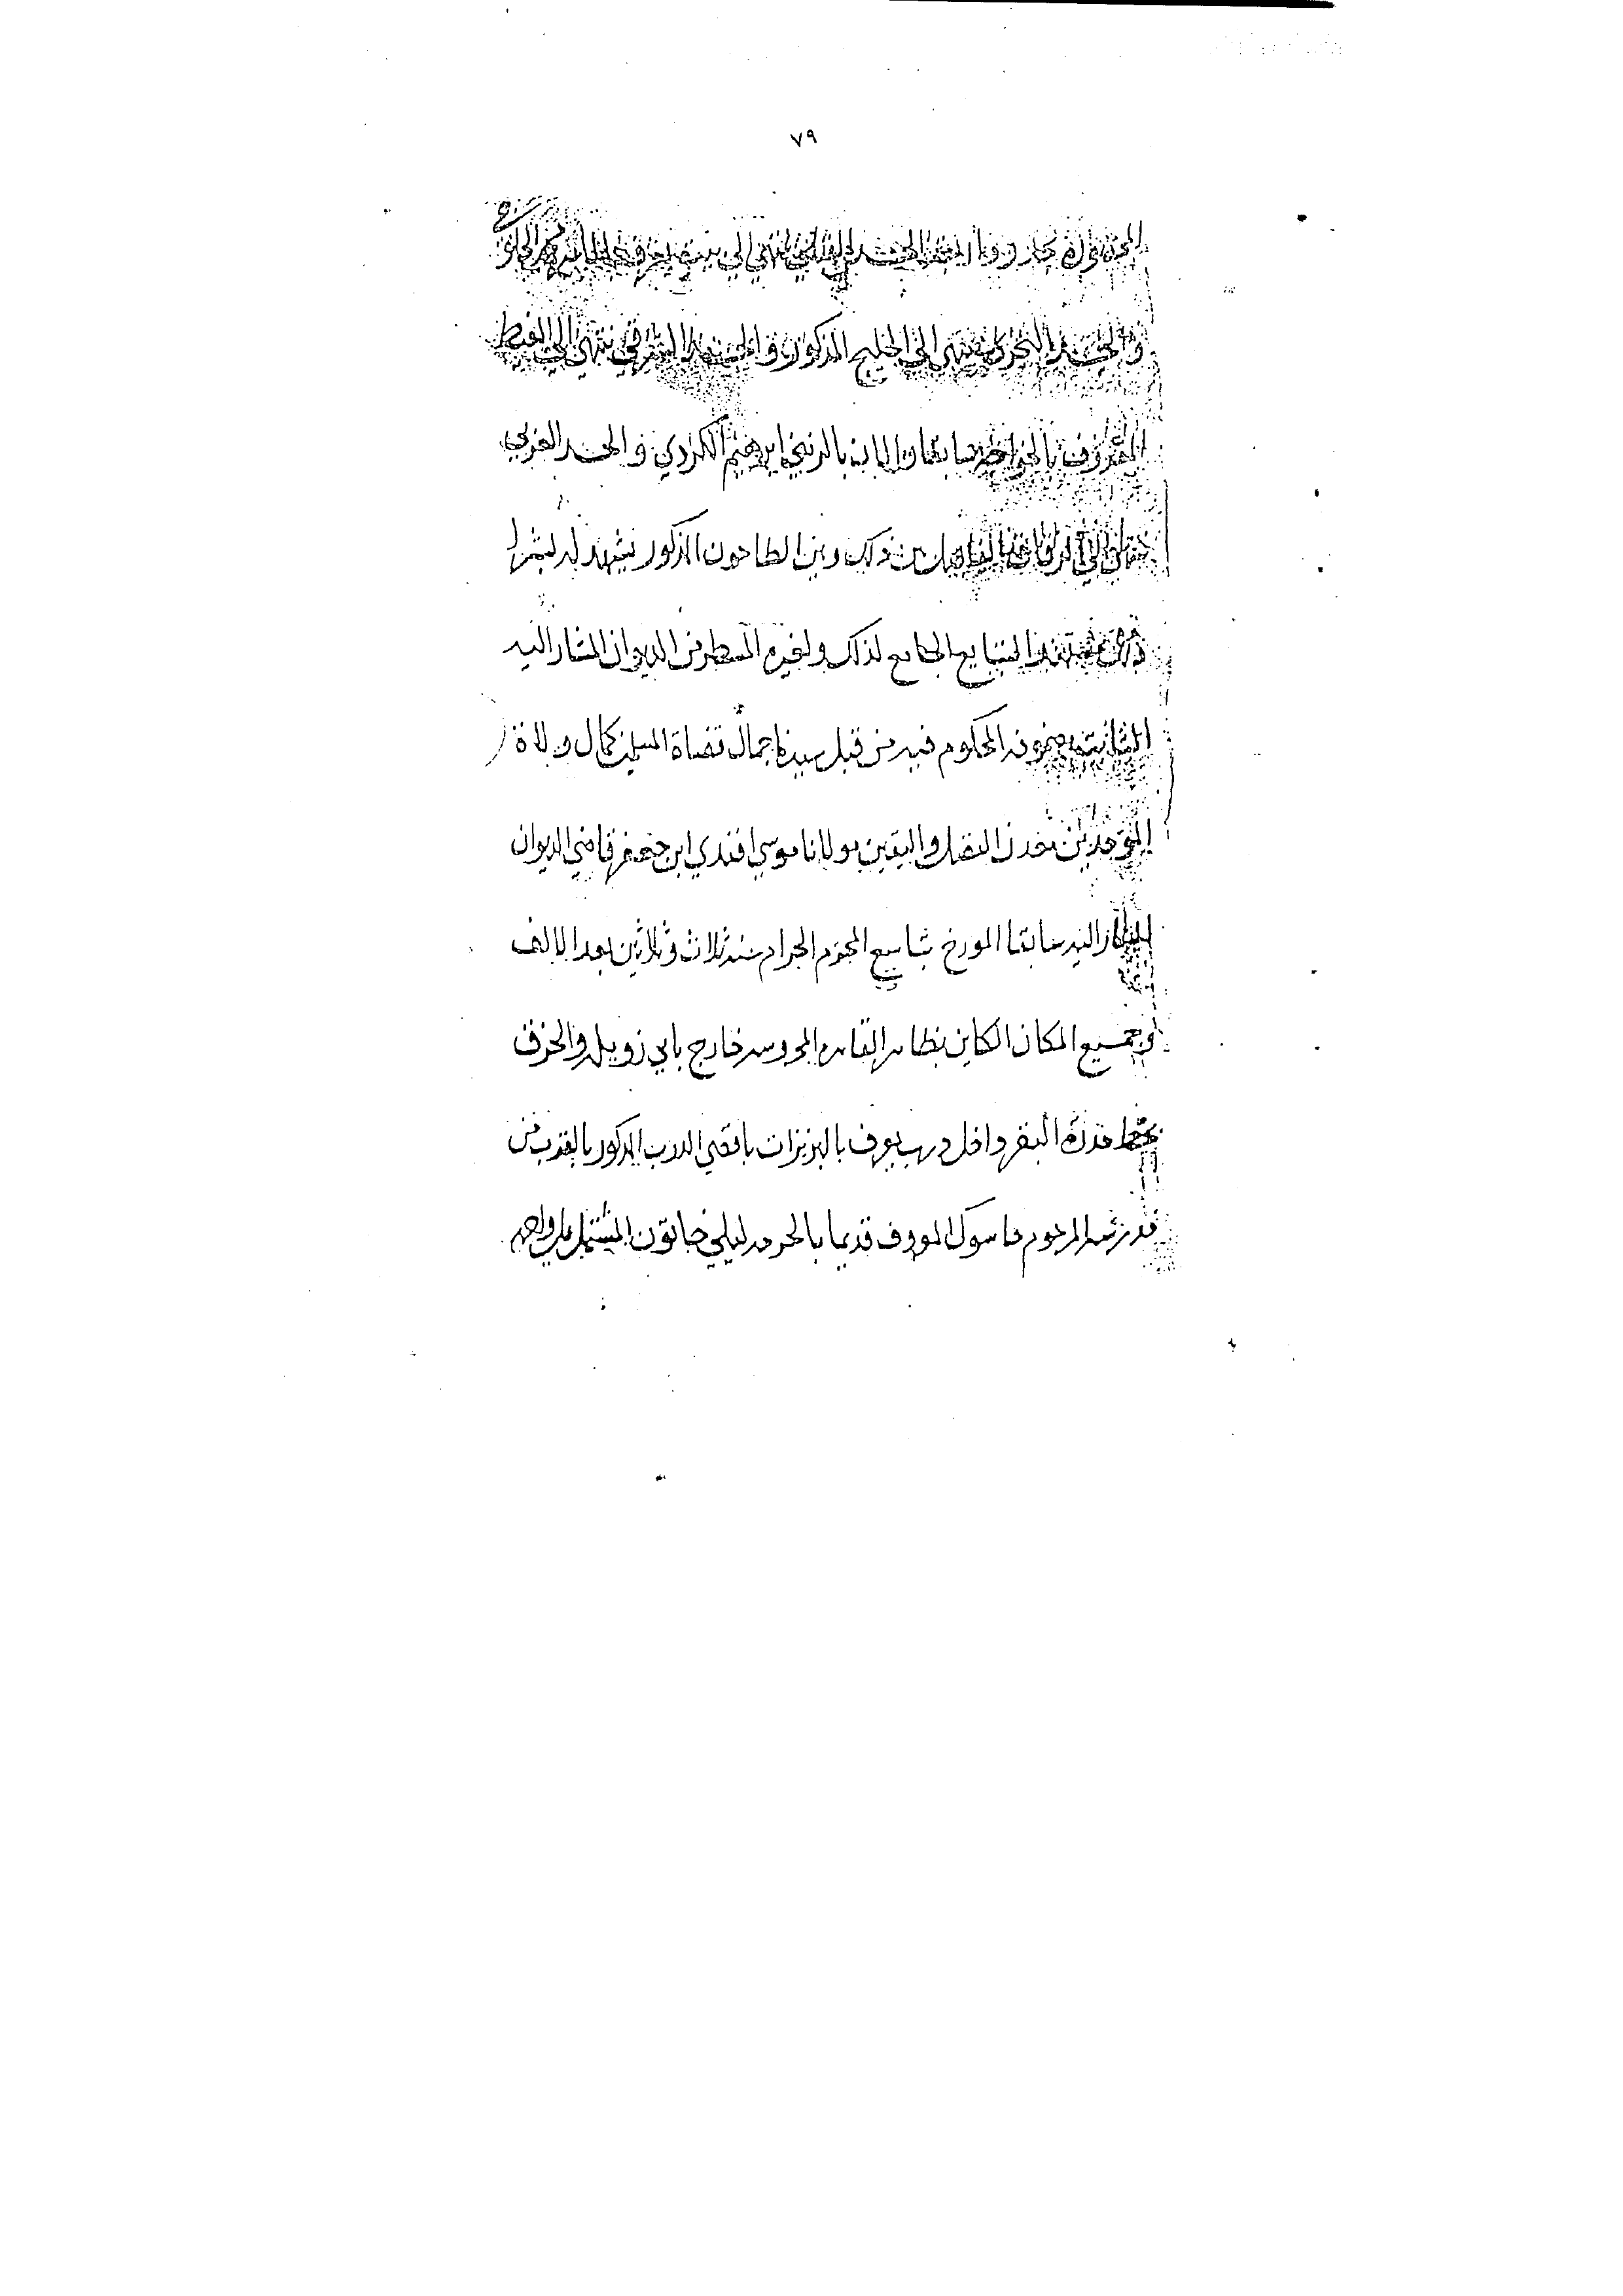 ٧٩
الحد القبلي ينتهي الى بيت يعرف
والحد البحري ينتهي الى الخليج المذكور والحد الشرقي ينتهي الى الغيط
المعروف بالخواجه سابقا والان بالزيني ابرهيم الكردي والحد الغربي
الى الزقاق الفاصل بين ذلك وبين الطاحون المذكور يشهد له بشرا
ذلك التبايع الجامع لذلك ولغيره المسطر من الديوان المشار اليه
الثابت مضمونه المحكوم فيه من قبل سيدنا جمال قضاة المسلمين كمال ولاة
الموحدين معدن الفضل واليقين مولانا موسي افندي ابن جعفر قاضي الديوان
المشار اليه سابقا المورخ بتاسع المحرم الحرام سنة ثلاث وثلاثين بعد الالف
وجميع المكان الكاين بظاهر القاهره المحروسه خارج بابي زويله والخرق
بخط حدرة البقر داخل درب يعرف بالبزبزات باقصي الدرب المذكور بالقرب من
مدرسه المرحوم سوك المعروف قديما بالحرمه ليلي خاتون المشتمل علي واجهه